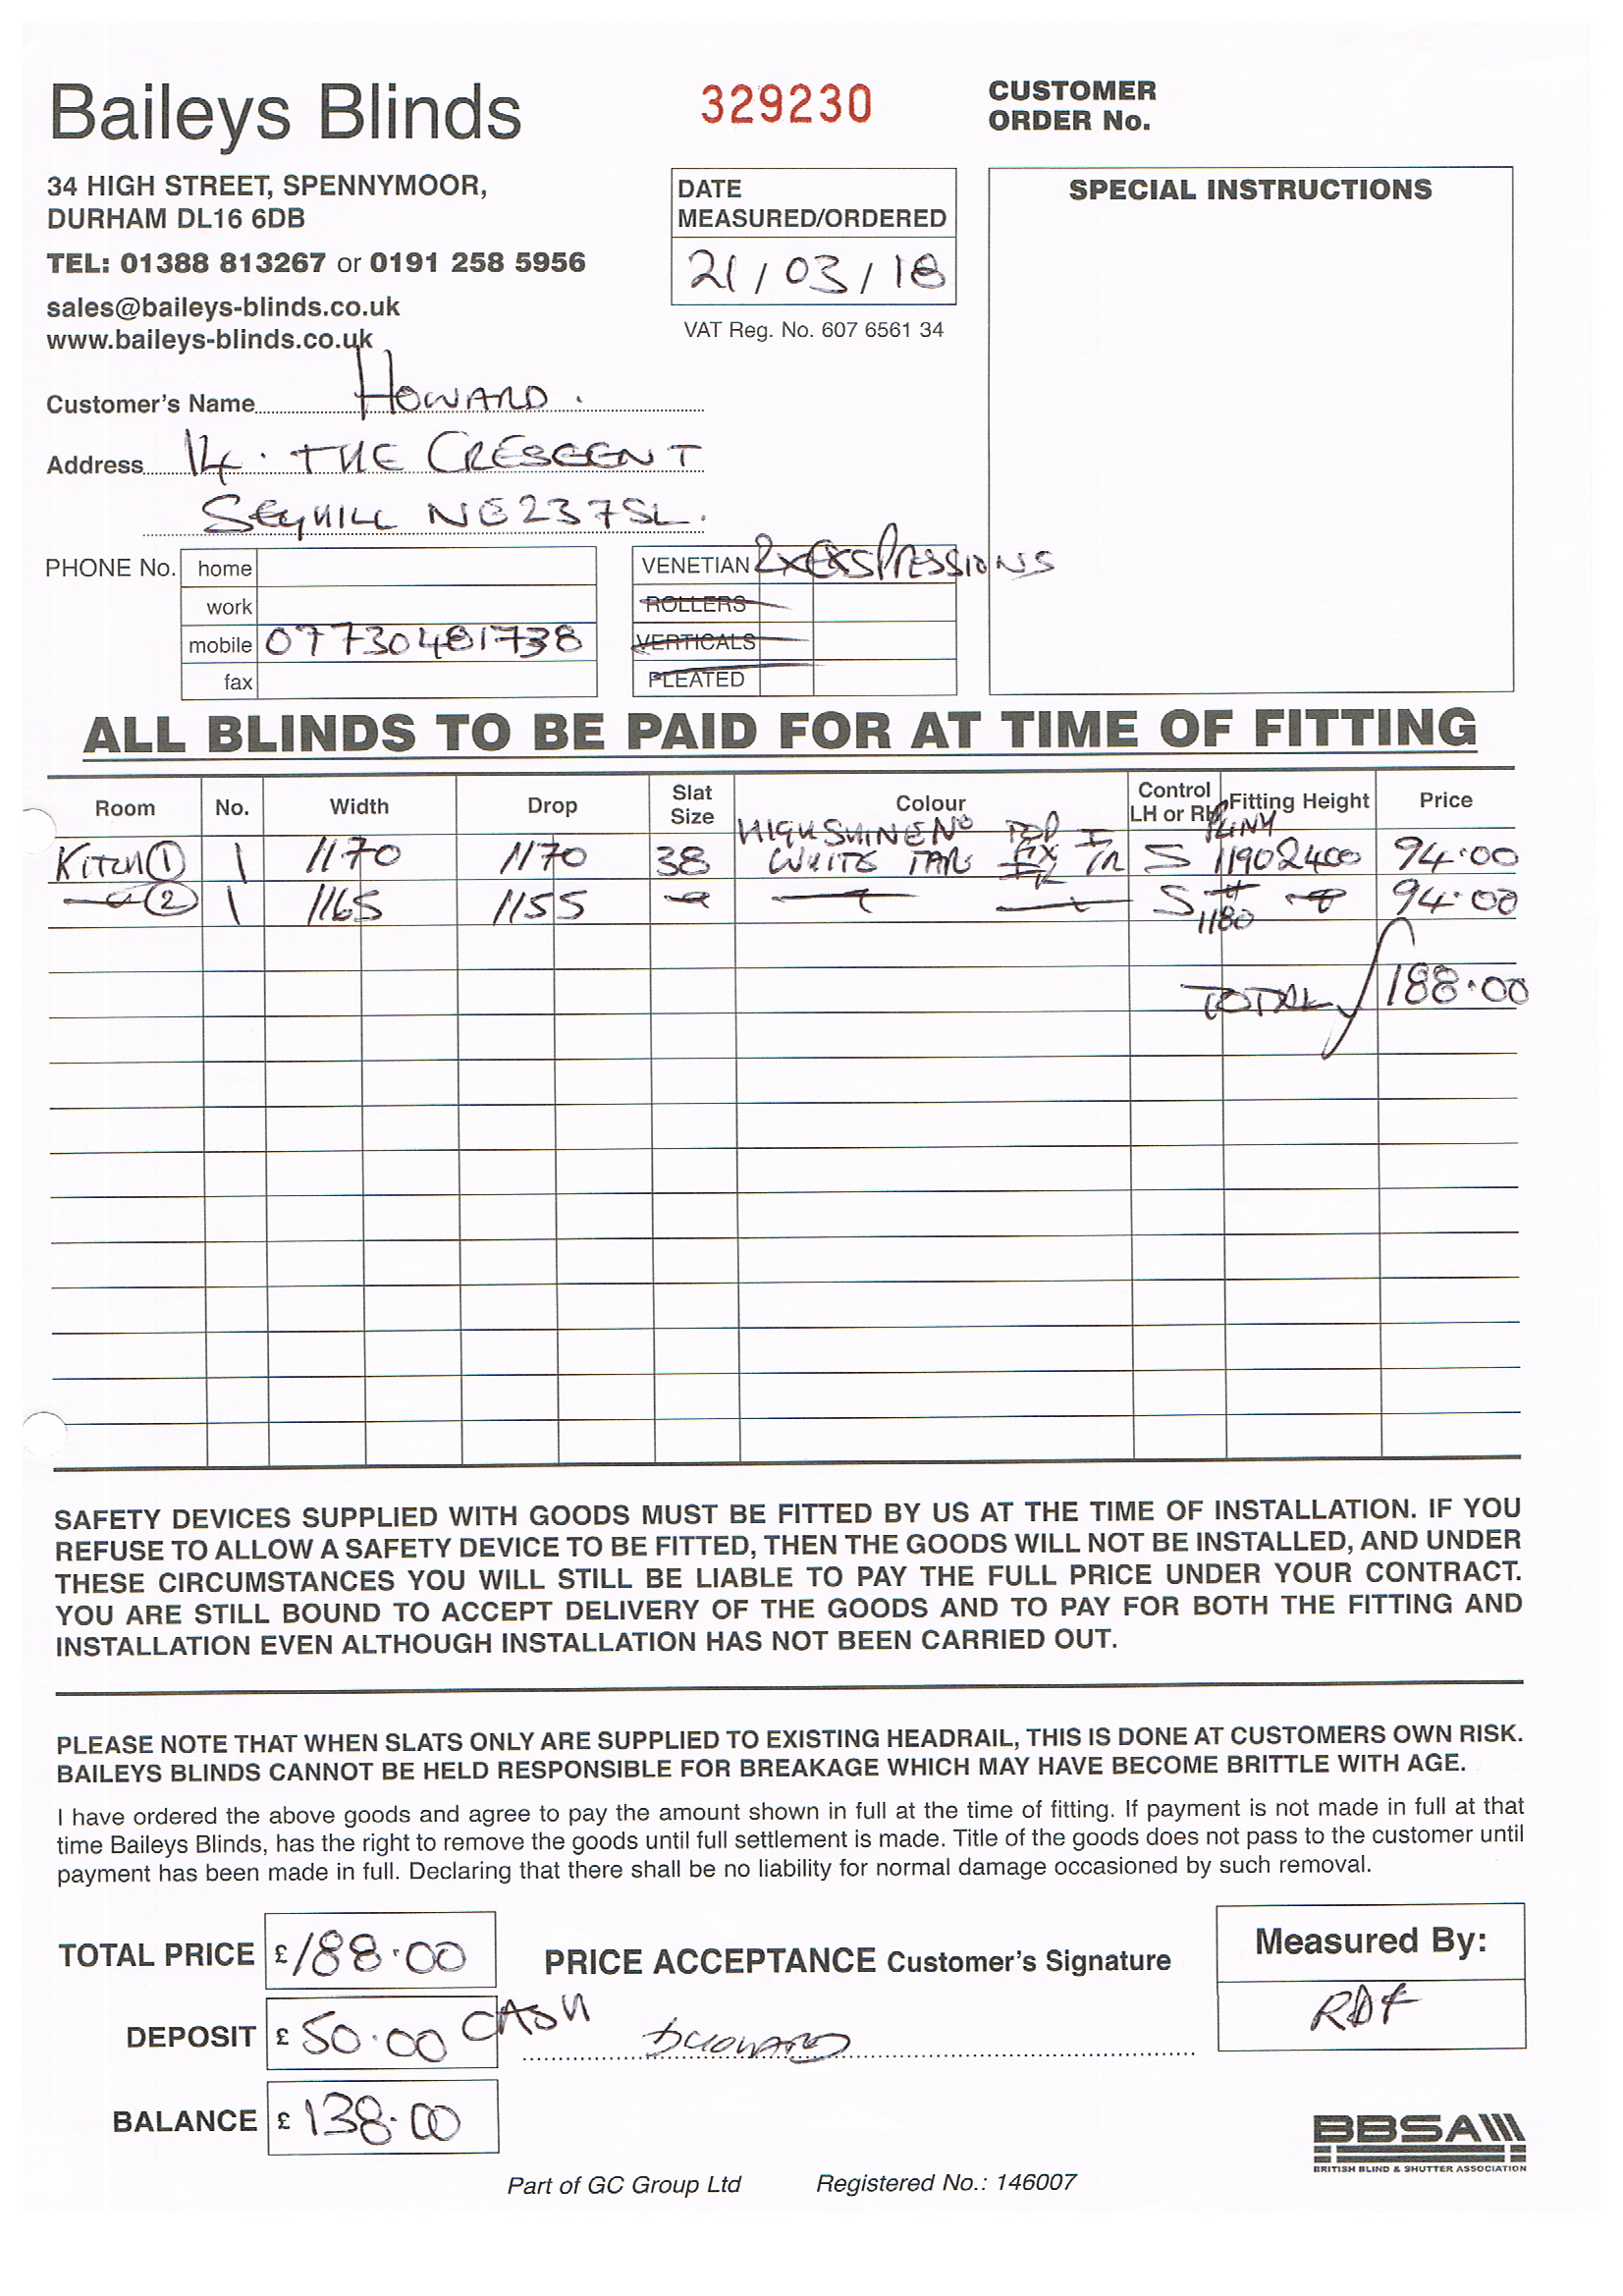 Baileys Blinds
329230
CUSTOMER
ORDER No.
34 HIGH STREET, SPENNYMOOR,
DURHAM DL16 6DB
TEL: 01388 813267 or 0191 258 5956
sales@baileys-blinds.co.uk
www.baileys-blinds.co.uk
DATE
MEASURED/ORDERED
21/03/18
VAT Reg. No. 607 6561 34
SPECIAL INSTRUCTIONS
Customer's Name HOWARD.
Address 14. THE CRESCENT
SEGHILL NE237SL.
PHONE No. home
work
mobile 07730481738
fax
VENETIAN 2x EXSPRESSIONS
ROLLERS
VERTICALS
PLEATED
ALL BLINDS TO BE PAID FOR AT TIME OF FITTING
Room No. Width Drop Slat Size Colour Control LH or RH Fitting Height Price
HIGHSHINE No
KITCH 1 1 1170 1170 38 WHITE S 1190 2400 94.00
2 1 1165 1155 S 1180 94.00
TOTAL 188.00
SAFETY DEVICES SUPPLIED WITH GOODS MUST BE FITTED BY US AT THE TIME OF INSTALLATION. IF YOU
REFUSE TO ALLOW A SAFETY DEVICE TO BE FITTED, THEN THE GOODS WILL NOT BE INSTALLED, AND UNDER
THESE CIRCUMSTANCES YOU WILL STILL BE LIABLE TO PAY THE FULL PRICE UNDER YOUR CONTRACT.
YOU ARE STILL BOUND TO ACCEPT DELIVERY OF THE GOODS AND TO PAY FOR BOTH THE FITTING AND
INSTALLATION EVEN ALTHOUGH INSTALLATION HAS NOT BEEN CARRIED OUT.
PLEASE NOTE THAT WHEN SLATS ONLY ARE SUPPLIED TO EXISTING HEADRAIL, THIS IS DONE AT CUSTOMERS OWN RISK.
BAILEYS BLINDS CANNOT BE HELD RESPONSIBLE FOR BREAKAGE WHICH MAY HAVE BECOME BRITTLE WITH AGE.
I have ordered the above goods and agree to pay the amount shown in full at the time of fitting. If payment is not made in full at that
time Baileys Blinds, has the right to remove the goods until full settlement is made. Title of the goods does not pass to the customer until
payment has been made in full. Declaring that there shall be no liability for normal damage occasioned by such removal.
TOTAL PRICE £188.00
PRICE ACCEPTANCE Customer's Signature
Measured By:
RDF
DEPOSIT £ 50.00 CASH
DHOWARD
BALANCE £ 138.00
BBSA
BRITISH BLIND & SHUTTER ASSOCIATION
Part of GC Group Ltd Registered No.: 146007